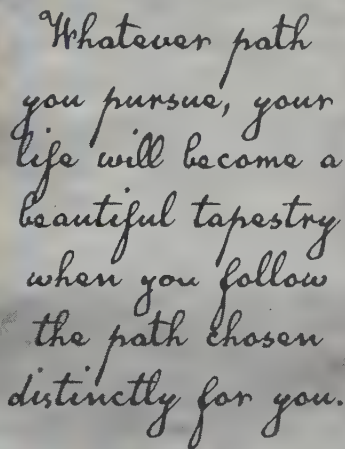 Whatever path
you pursue, your
life will become a
beautiful tapestry
when you follow
the path chosen
distinctly for you.